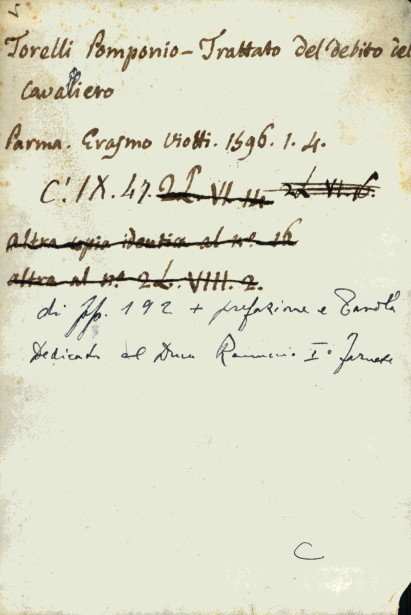 Torelli Pomponio - Trattato del debito del
Cavaliero
Parma. Erasmo Viotti. 1596. 1. 4.
C'. IX. 47. 2L. VI. 14. 2L VI. 6.
altra copia identica al nº 16
altra al nº 2L. VIII. 2.
di pp. 192 + prefazione e Tavola
Dedicato al Duca Ranuccio Iº Farnese
C